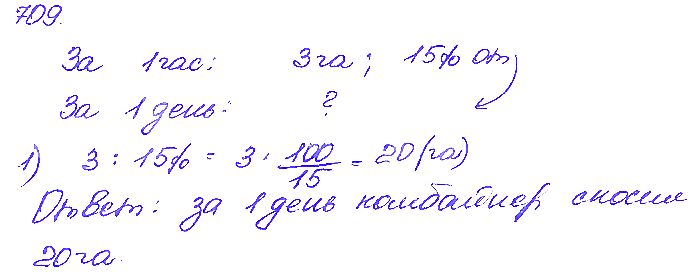 709.
За 1 час: 3 га; 15% от
За 1 день: ?
1) 3 : 15% = 3 · 100/15 = 20 (га)
Ответ: за 1 день комбайнер скосил
20 га.